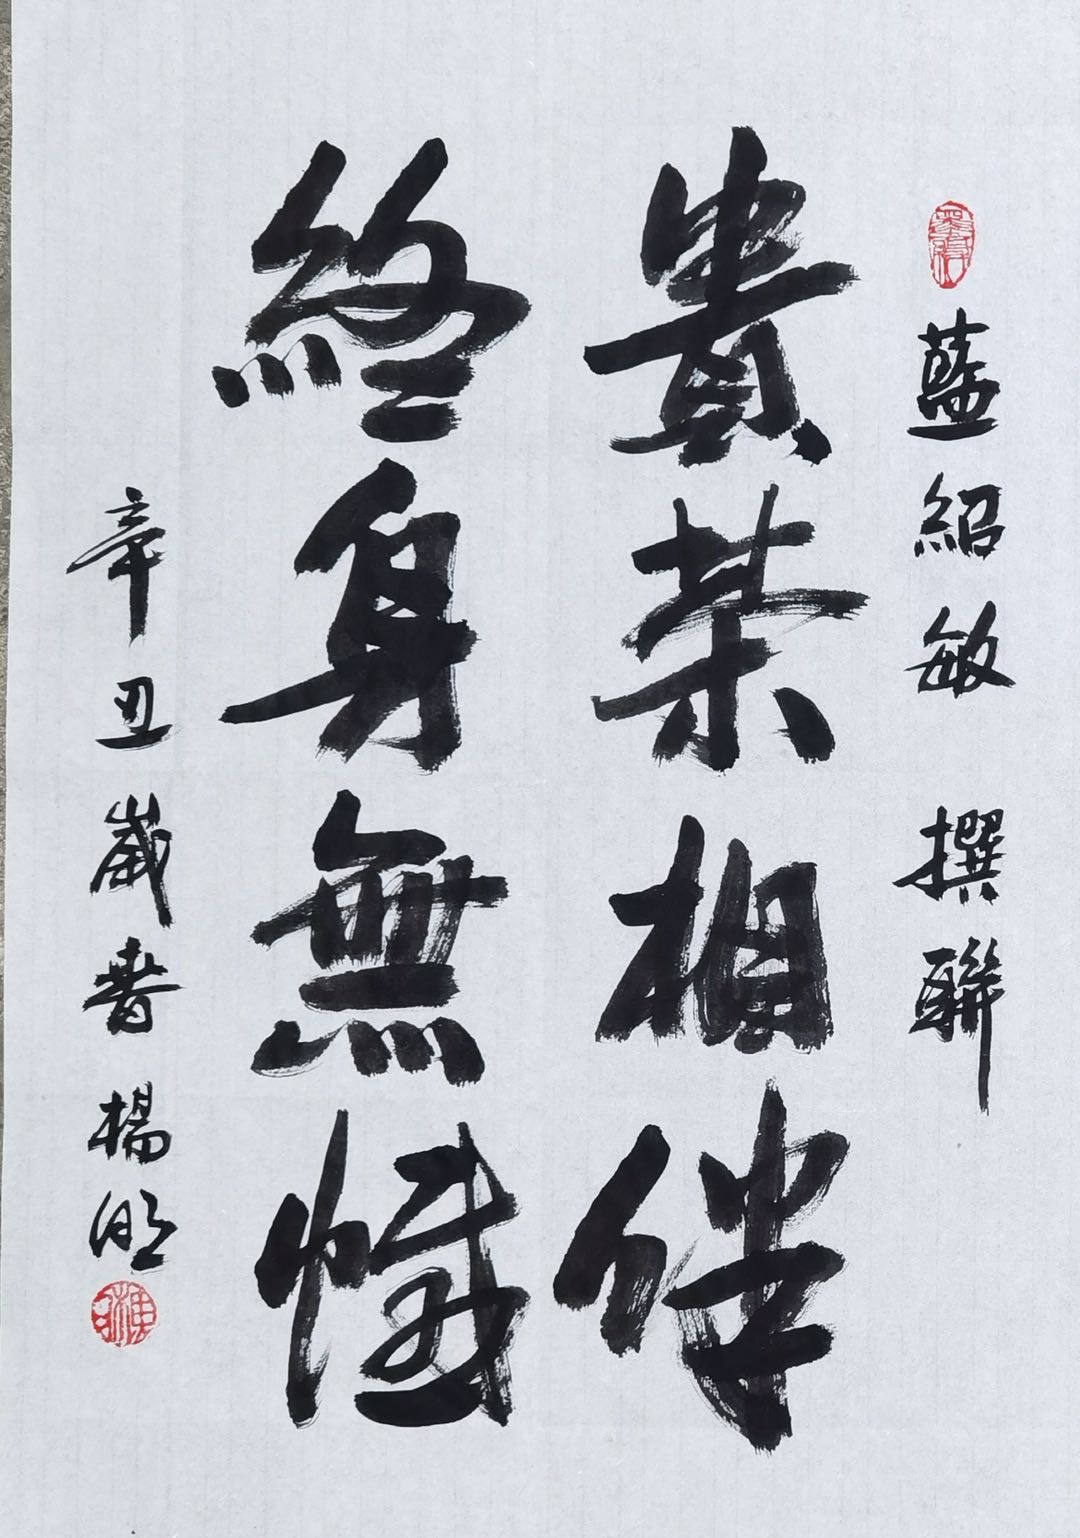 藍紹敏 撰聯
貴荣相伴
終身無憾
辛丑歲書楊明